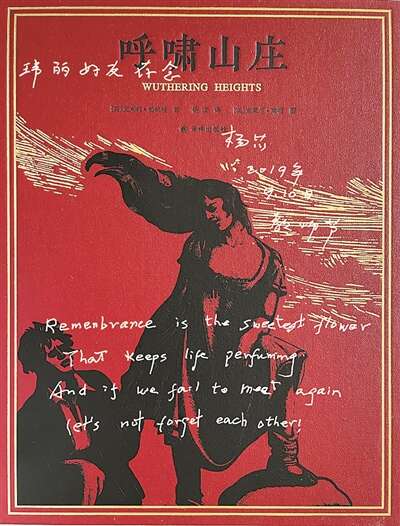 呼啸山庄
玮丽好友存念
WUTHERING HEIGHTS
译林出版社
杨苡
2019年
9.10日
教师节
Remenbrance is the sweetest flower
That keeps life perfuming
And if we fail to meet again
let's not forget each other!